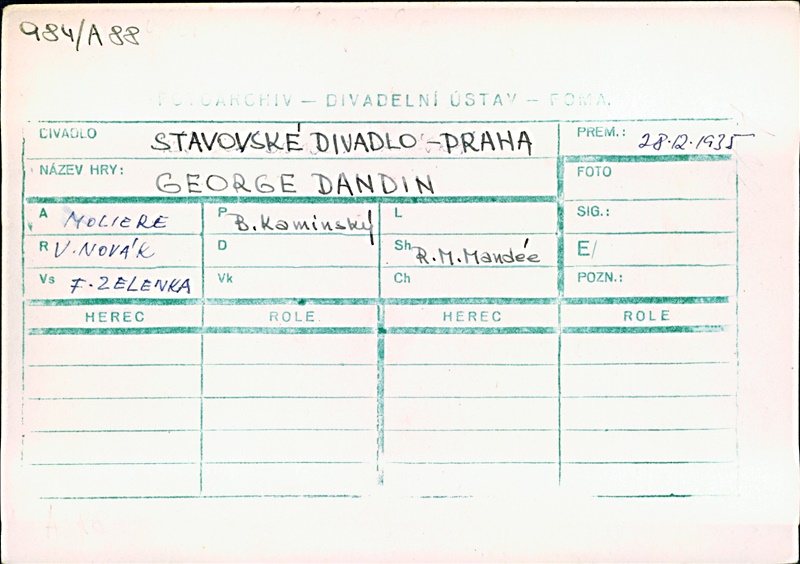 984/A88
FOTOARCHIV – DIVADELNÍ ÚSTAV – FOMA.
DIVADLO STAVOVSKÉ DIVADLO – PRAHA PREM.: 28.12.1935
NÁZEV HRY: GEORGE DANDIN FOTO
A MOLIERE P B. Kaminský L SIG.:
R V. NOVÁK D Sh R.M. Mandée E/
Vs F. ZELENKA Vk Ch POZN.:
HEREC ROLE HEREC ROLE